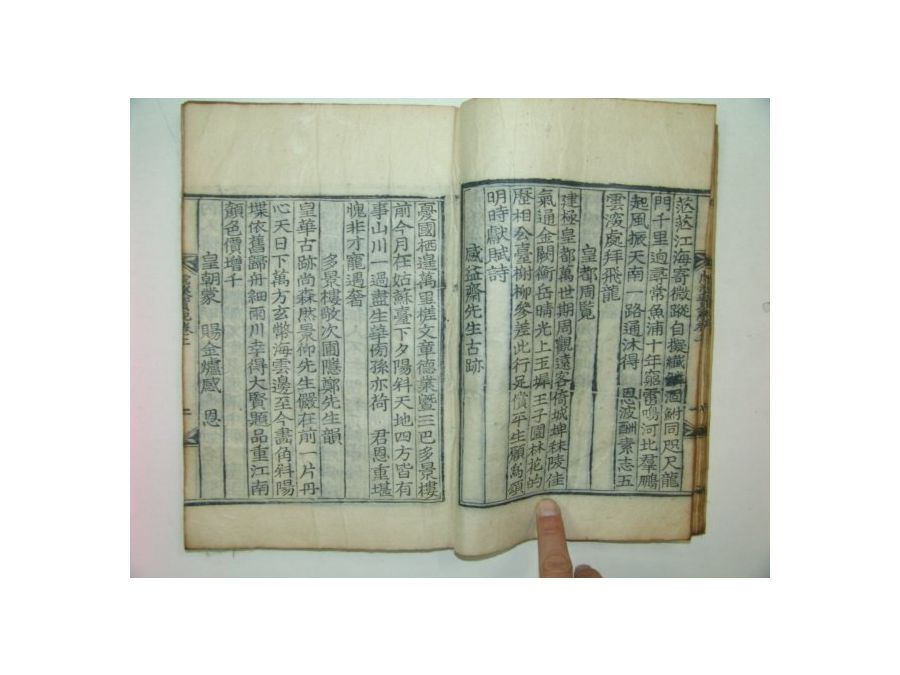 茫茫江海寄微蹤自擬纖鱗涸鮒同咫尺龍
門千里逈尋常魚浦十年窮雷鳴河北羣鵬
起風振天南一路通沐得 恩波酬素志五
雲濱處拜飛龍
皇都周覧
建極皇都萬世期周觀遠客倚城埤秣陵佳
氣通金闕衡岳晴光上玉墀王子園林花的
歷相公臺榭柳參差此行足償平生願爲頌
明時獻賦詩
感益齋先生古跡
憂國栖遑萬里槎文章德業曁三巴多景樓
前今月在姑蘇臺下夕陽斜天地四方皆有
事山川一過盡生華衡孫亦荷 君恩重堪
愧非才寵遇奢
多景樓敬次圃隱鄭先生韻
皇華古跡尚森然景仰先生儼在前一片丹
心天日下萬方玄幣海雲邊至今畵角斜陽
堞依舊歸舟細雨川幸得大賢題品重江南
顔色價增千
皇朝蒙 賜金爐感 恩